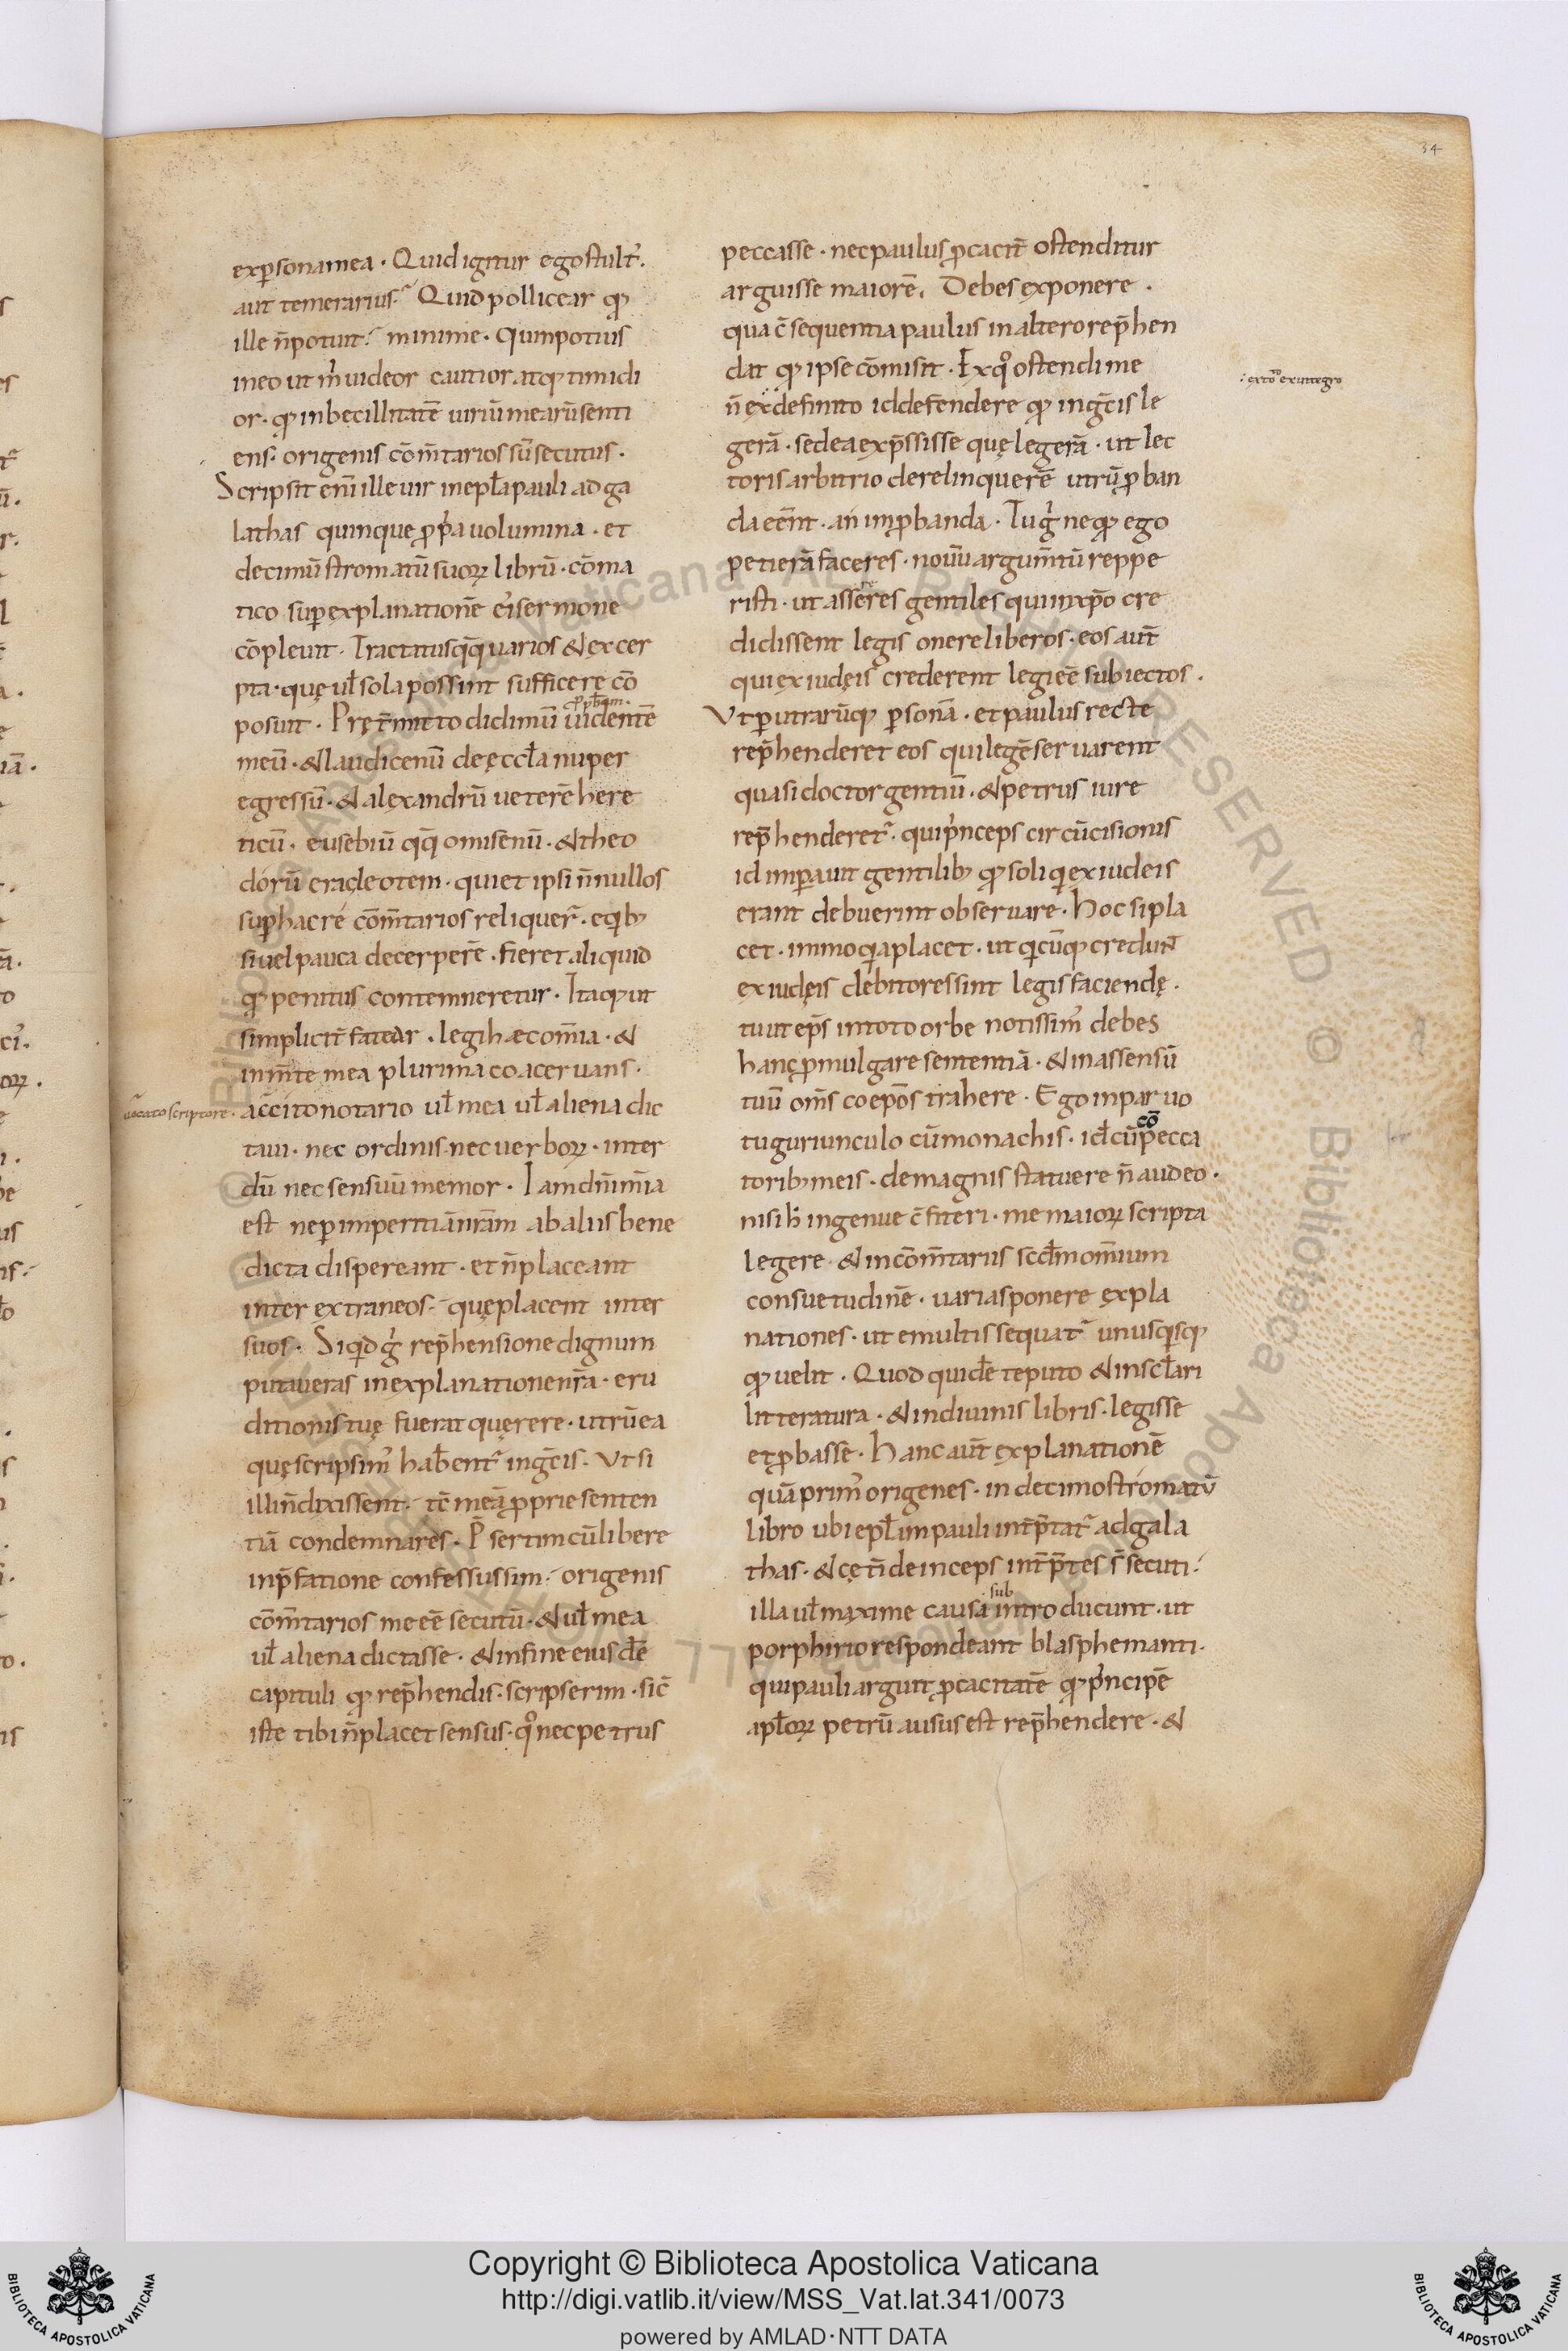 34
exp̄sonamea · Quid igitur ego stult᾽.
aut temerarius᾽· Quid pollicear qđ
ille n̄potuit᾽· minime · Quinpotius
in eo ut m̄ uideor cautior atq; timidi
or · qđ inbecillitatē uiriū mearū senti
ens · origenis cōm̄tarios sū secutus ·
Scripsit enī ille uir in epła pauli ad ga
lathas quinque ꝓp̄a uolumina · et
decimū stromatū suoꝝ librū · cōma
tico sup̄ explanationē ei᾽ sermone
cōpleuit · Tractatusq̄q; uarios & excer
pta · quę uł sola possint sufficere cō
ꝓph̄am ·
posuit · Prętm̄itto didimū uidentē
meū · & laudicenū de ęccła nuper
egressū · & alexandrū ueterē here
ticū · eusebiū q̄q; omisenū · & theo
dorū eracleotem · qui et ipsi n̄nullos
sup̄ hac re cōm̄tarios reliquer᾽ · e qib;
si uel pauca decerperē · fieret aliquid
qđ penitus contemneretur · Itaq; ut
simplicit̄ fatear · legi hæc om̄ia · &
in m̄te mea plurima coaceruans ·
uocato scriptore · accito notario uł mea uł aliena dic
taui · nec ordinis nec uerboꝝ · inter
dū nec sensuū memor · Iam dn̄i m̄ia
est ne p̄ imperitiā nr̄am ab aliis bene
dicta dispereant · et n̄ placeant
inter extraneos · quę placent inter
suos · Siqid ḡ rep̄hensione dignum
putaueras in explanatione nr̄a · eru
ditionis tuę fuerat quęrere · utrū ea
quę scripsim᾽ hab̄ent᾽ in gc̄is · Ut si
illi n̄ dixissent · tc̄ meā ꝓprie senten
tiā condemnares · P̄sertim cū libere
in p̄fatione confessus sim · origenis
cōm̄tarios me eē secutū · & uł mea
uł aliena dictasse · & in fine eiusdē
capituli qđ rep̄hendis · scripserim · sic̄
iste tibi n̄ placet sensus · qͦ nec petrus
peccasse · nec paulus ꝓcacit̄ ostenditur
arguisse maiorē · Debes exponere ·
qua c̄sequentia paulus in altero rep̄hen
dat qđ ipse cōmisit · Ex qͦ ostendi me
n̄ ex definito id defendere qđ in gc̄is le
gerā · sed ea exp̄ssisse quę legerā · ut lec
toris arbitrio derelinquerē utrū ꝓban
da eēnt · an inꝓbanda · Tu ḡ ne qđ ego
petierā faceres · nouū argum̄tū reppe
risti · ut assereres gentiles qui in xp̄o cre
didissent legis onere liberos · eos aut̄
qui ex iudęis crederent legi eē subiectos ·
Ut p̄ utrarūq; p̄sonā · et paulus recte
rep̄henderet eos qui legē seruarent
quasi doctor gentiū · & petrus iure
rep̄henderet᾽ · qui p̄nceps circūcisionis
id imp̄auit gentilib; qđ soli qi ex iudeis
erant debuerint obseruare · Hoc si pla
cet · immo qia placet · ut qicūq; credunt
ex iudęis debitores sint legis faciendę ·
tu ut ep̄s in toto orbe notissim᾽ debes
hanc ꝓmulgare sententiā · & in assensū
tuū om̄s coepōs trahere · Ego in paruo
cō
tuguriunculo cū monachis · id̄ cū pecca
torib; meis · de magnis statuere n̄ audeo ·
nisi h̄ ingenue c̄fiteri · me maioꝝ scripta
legere · & in cōm̄tariis scd̄m om̄ium
consuetudinē · uarias ponere expla
nationes · ut e multis sequat᾽ unusqisq;
qđ uelit · Quod quidē te puto & in scłari
litteratura · & in diuinis libris · legisse
et ꝓbasse · Hanc aut̄ explanationē
quā prim᾽ origenes · in decimo stromatū
libro ubi epłam pauli int̄p̄tat᾽ ad gala
thas · & cęt̄i deinceps int̄p̄tes s̄ secuti ·
sub
illa uł maxime causa introducunt · ut
porphirio respondeant blasphemanti ·
qui pauli arguit ꝓcacitatē qđ p̄ncipē
apłoꝝ petrū ausus est rep̄hendere · &
Copyright © Biblioteca Apostolica Vaticana
http://digi.vatlib.it/view/MSS_Vat.lat.341/0073
powered by AMLAD·NTT DATA
BIBLIOTECA APOSTOLICA VATICANA
BIBLIOTECA APOSTOLICA VATICANA